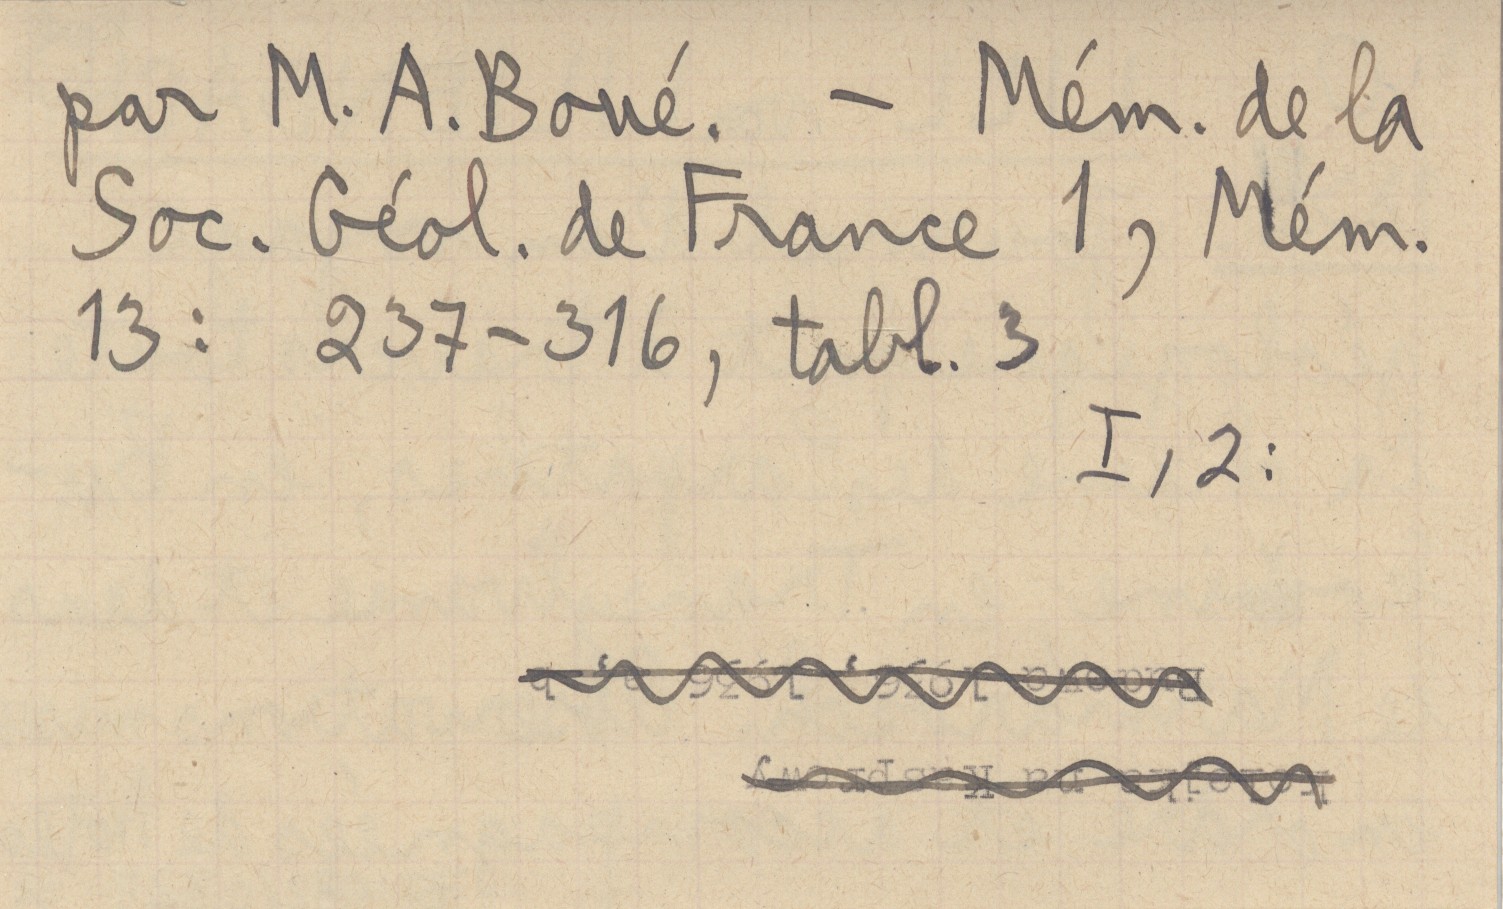 par M. A. Boué. – Mém. de la
Soc. Géol. de France 1, Mém.
13: 237-316, tabl. 3
I, 2:
na Kasprowy
1936, 1936